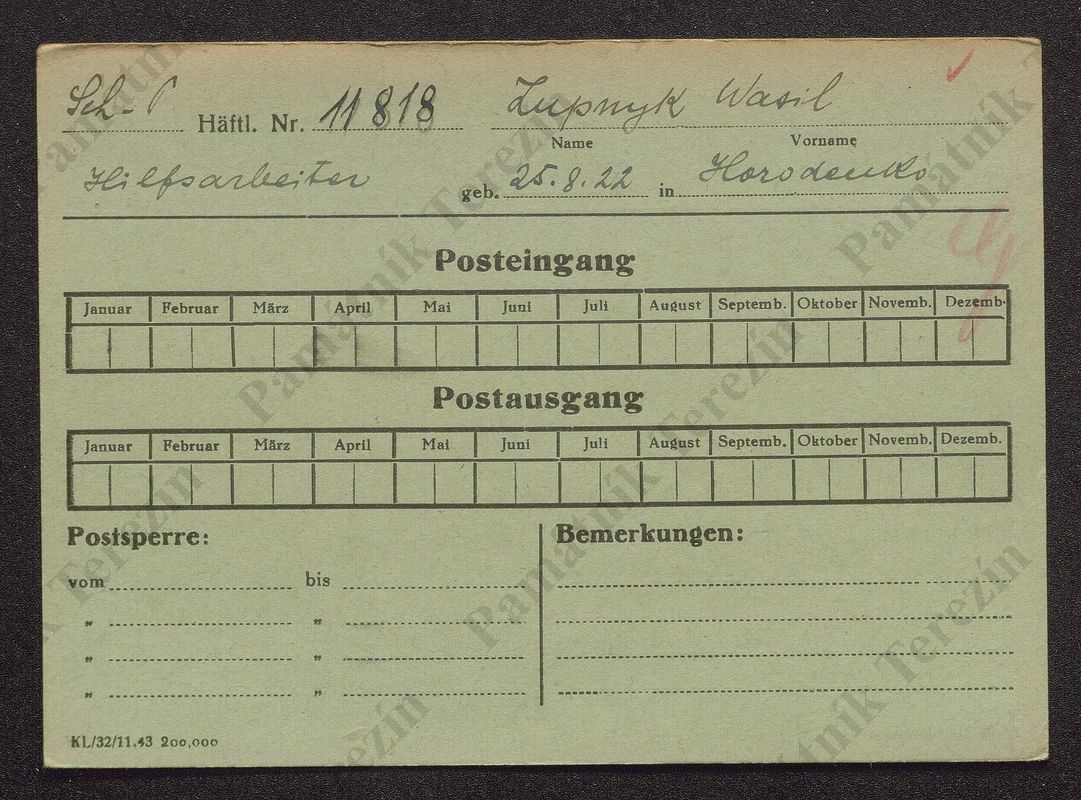 Sch-P Häftl. Nr. 11818 Zupnyk Wasil
Name Vorname
Hilfsarbeiter geb. 25.8.22 in Horodenko
Posteingang
Januar Februar März April Mai Juni Juli August Septemb. Oktober Novemb. Dezemb.
Postausgang
Januar Februar März April Mai Juni Juli August Septemb. Oktober Novemb. Dezemb.
Postsperre: Bemerkungen:
vom bis
„ „
„ „
„ „
KL/32/11.43 200,000
Památník Terezín